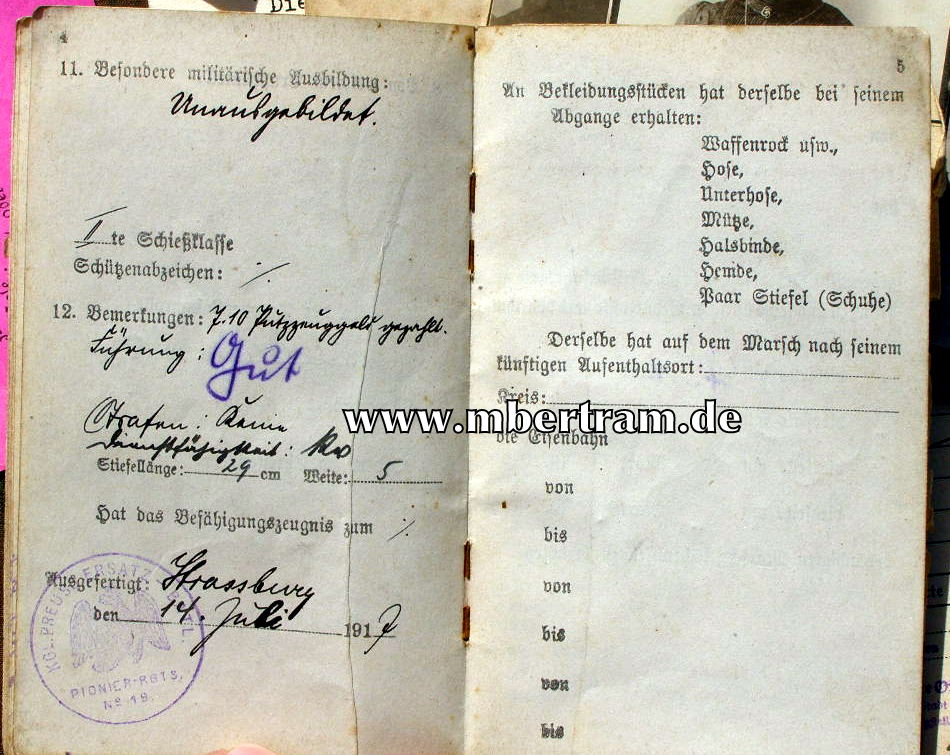 Die
4
11. Besondere militärische Ausbildung:
Unausgebildet.
II te Schießklasse
Schützenabzeichen: ./.
12. Bemerkungen: 7.10 Putzzeuggeld gezahlt.
Führung: Gut
Strafen: Keine
Dienstfähigkeit: kv
Stiefellänge: 29 cm Weite: 5
Hat das Befähigungszeugnis zum ./.
Ausgefertigt: Strassburg
den 14. Juli 1917
KGL. PREUSS. ERSATZ
PIONIER-RGTS.
No 19.
5
An Bekleidungsstücken hat derselbe bei seinem
Abgange erhalten:
Waffenrock usw.,
Hose,
Unterhose,
Mütze,
Halsbinde,
Hemde,
Paar Stiefel (Schuhe)
Derselbe hat auf dem Marsch nach seinem
künftigen Aufenthaltsort:
Kreis:
www.mbertram.de
die Eisenbahn
von
bis
von
bis
von
bis